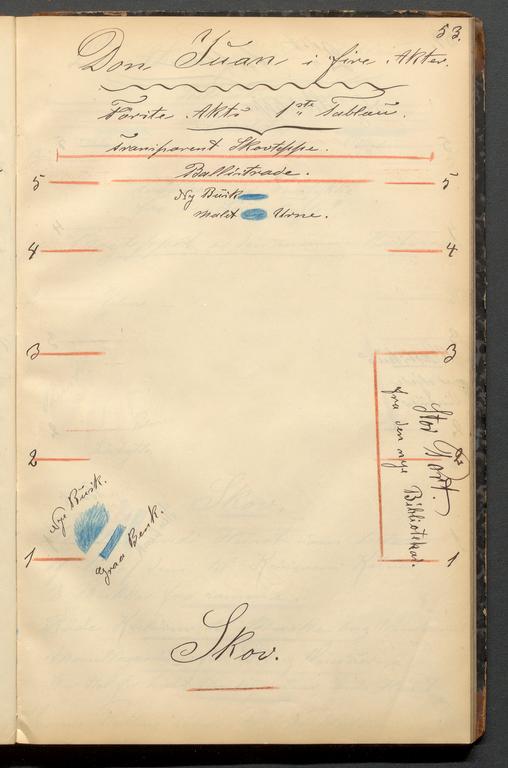 53.
Don Juan i fire Akter.
Förste Akts 1ste Tablau.
Transparent Skovtæppe.
Ballustrade.
5 5
Ny Busk
Malet Urne.
4 4
3 3
Stor Port.
fra den nye Bibliotekar.
2 2
Nye Busk.
Graa Benk.
1 1
Skov.